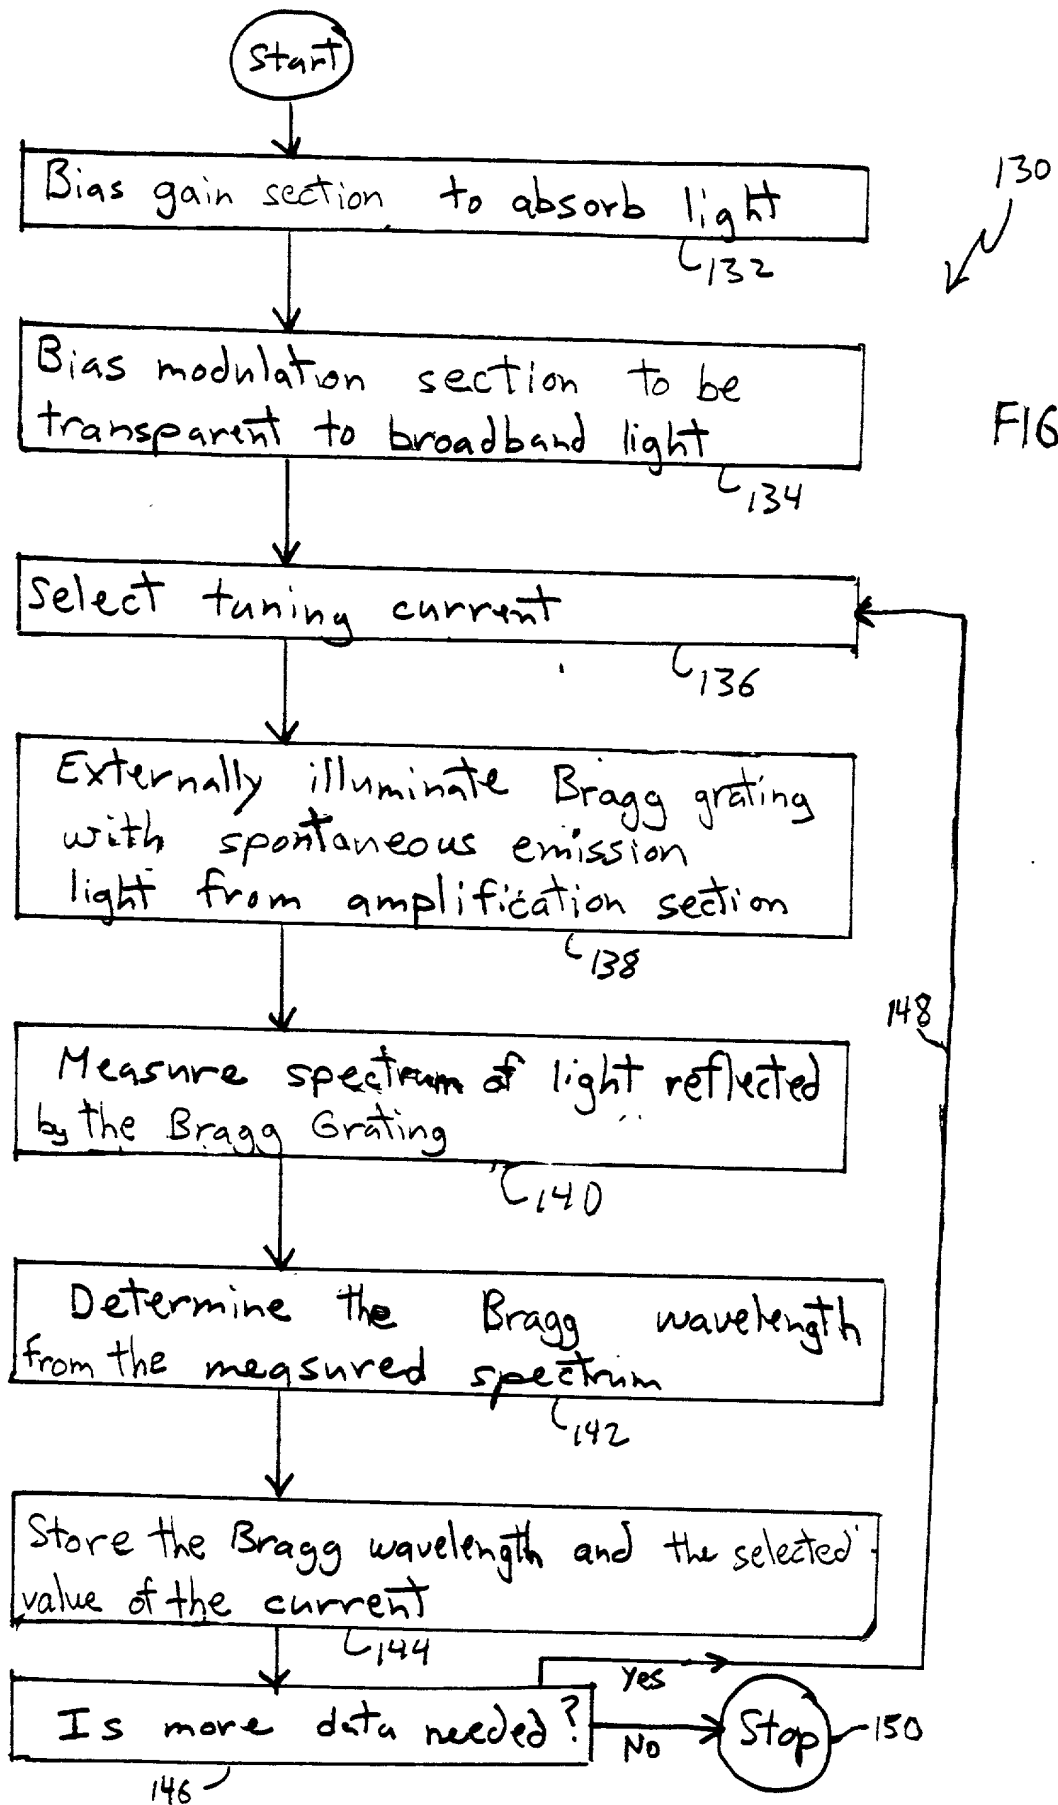 Start
Bias gain section to absorb light
132
130
Bias modulation section to be
transparent to broadband light
134
FIG
Select tuning current
136
Externally illuminate Bragg grating
with spontaneous emission
light from amplification section
138
Measure spectrum of light reflected
by the Bragg Grating
140
148
Determine the Bragg wavelength
from the measured spectrum
142
Store the Bragg wavelength and the selected
value of the current
144
Yes
Is more data needed?
No
Stop
150
146